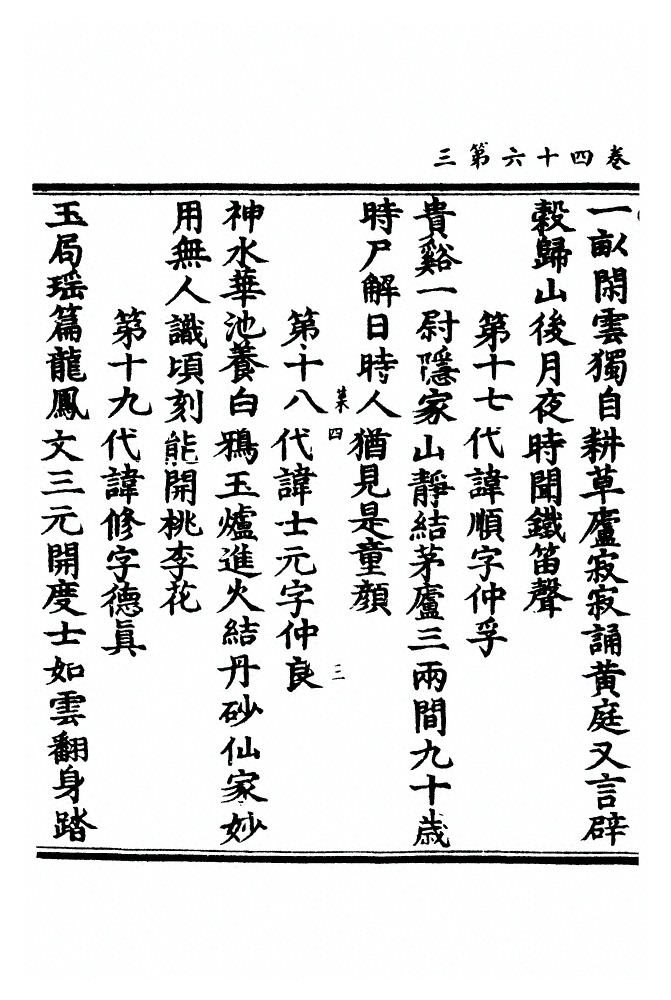 三第六十四巻
一畝閑雲獨自耕草廬寂寂誦黄庭又言辟
穀歸山後月夜時聞鐵笛聲
第十七代諱順字仲孚
貴谿一尉隱家山靜結茅廬三兩間九十歲
時尸解日時人猶見是童顔
第十八代諱士元字仲良
葉四
三
神水華池養白鴉玉爐進火結丹砂仙家妙
用無人識頃刻能開桃李花
第十九代諱修字德眞
玉局瑶篇龍鳳文三元開度士如雲翻身踏